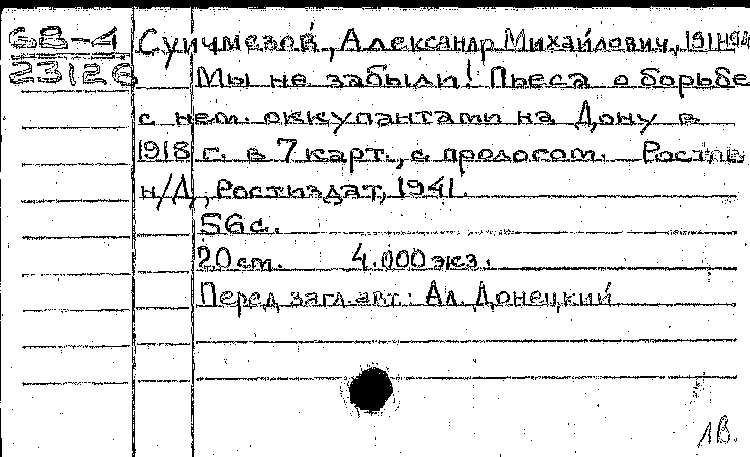 68-4
23126
Суичмезов, Александр Михайлович,
Мы не забыли! Пьеса о борьбе
с нем. оккупантами на Дону в
1918 г. в 7 карт., с прологом. Ростов
н/Д, Ростиздат, 1941.
56 с.
20 см. 4.000 экз.
Перед загл. авт: Ал. Донецкий
1В.